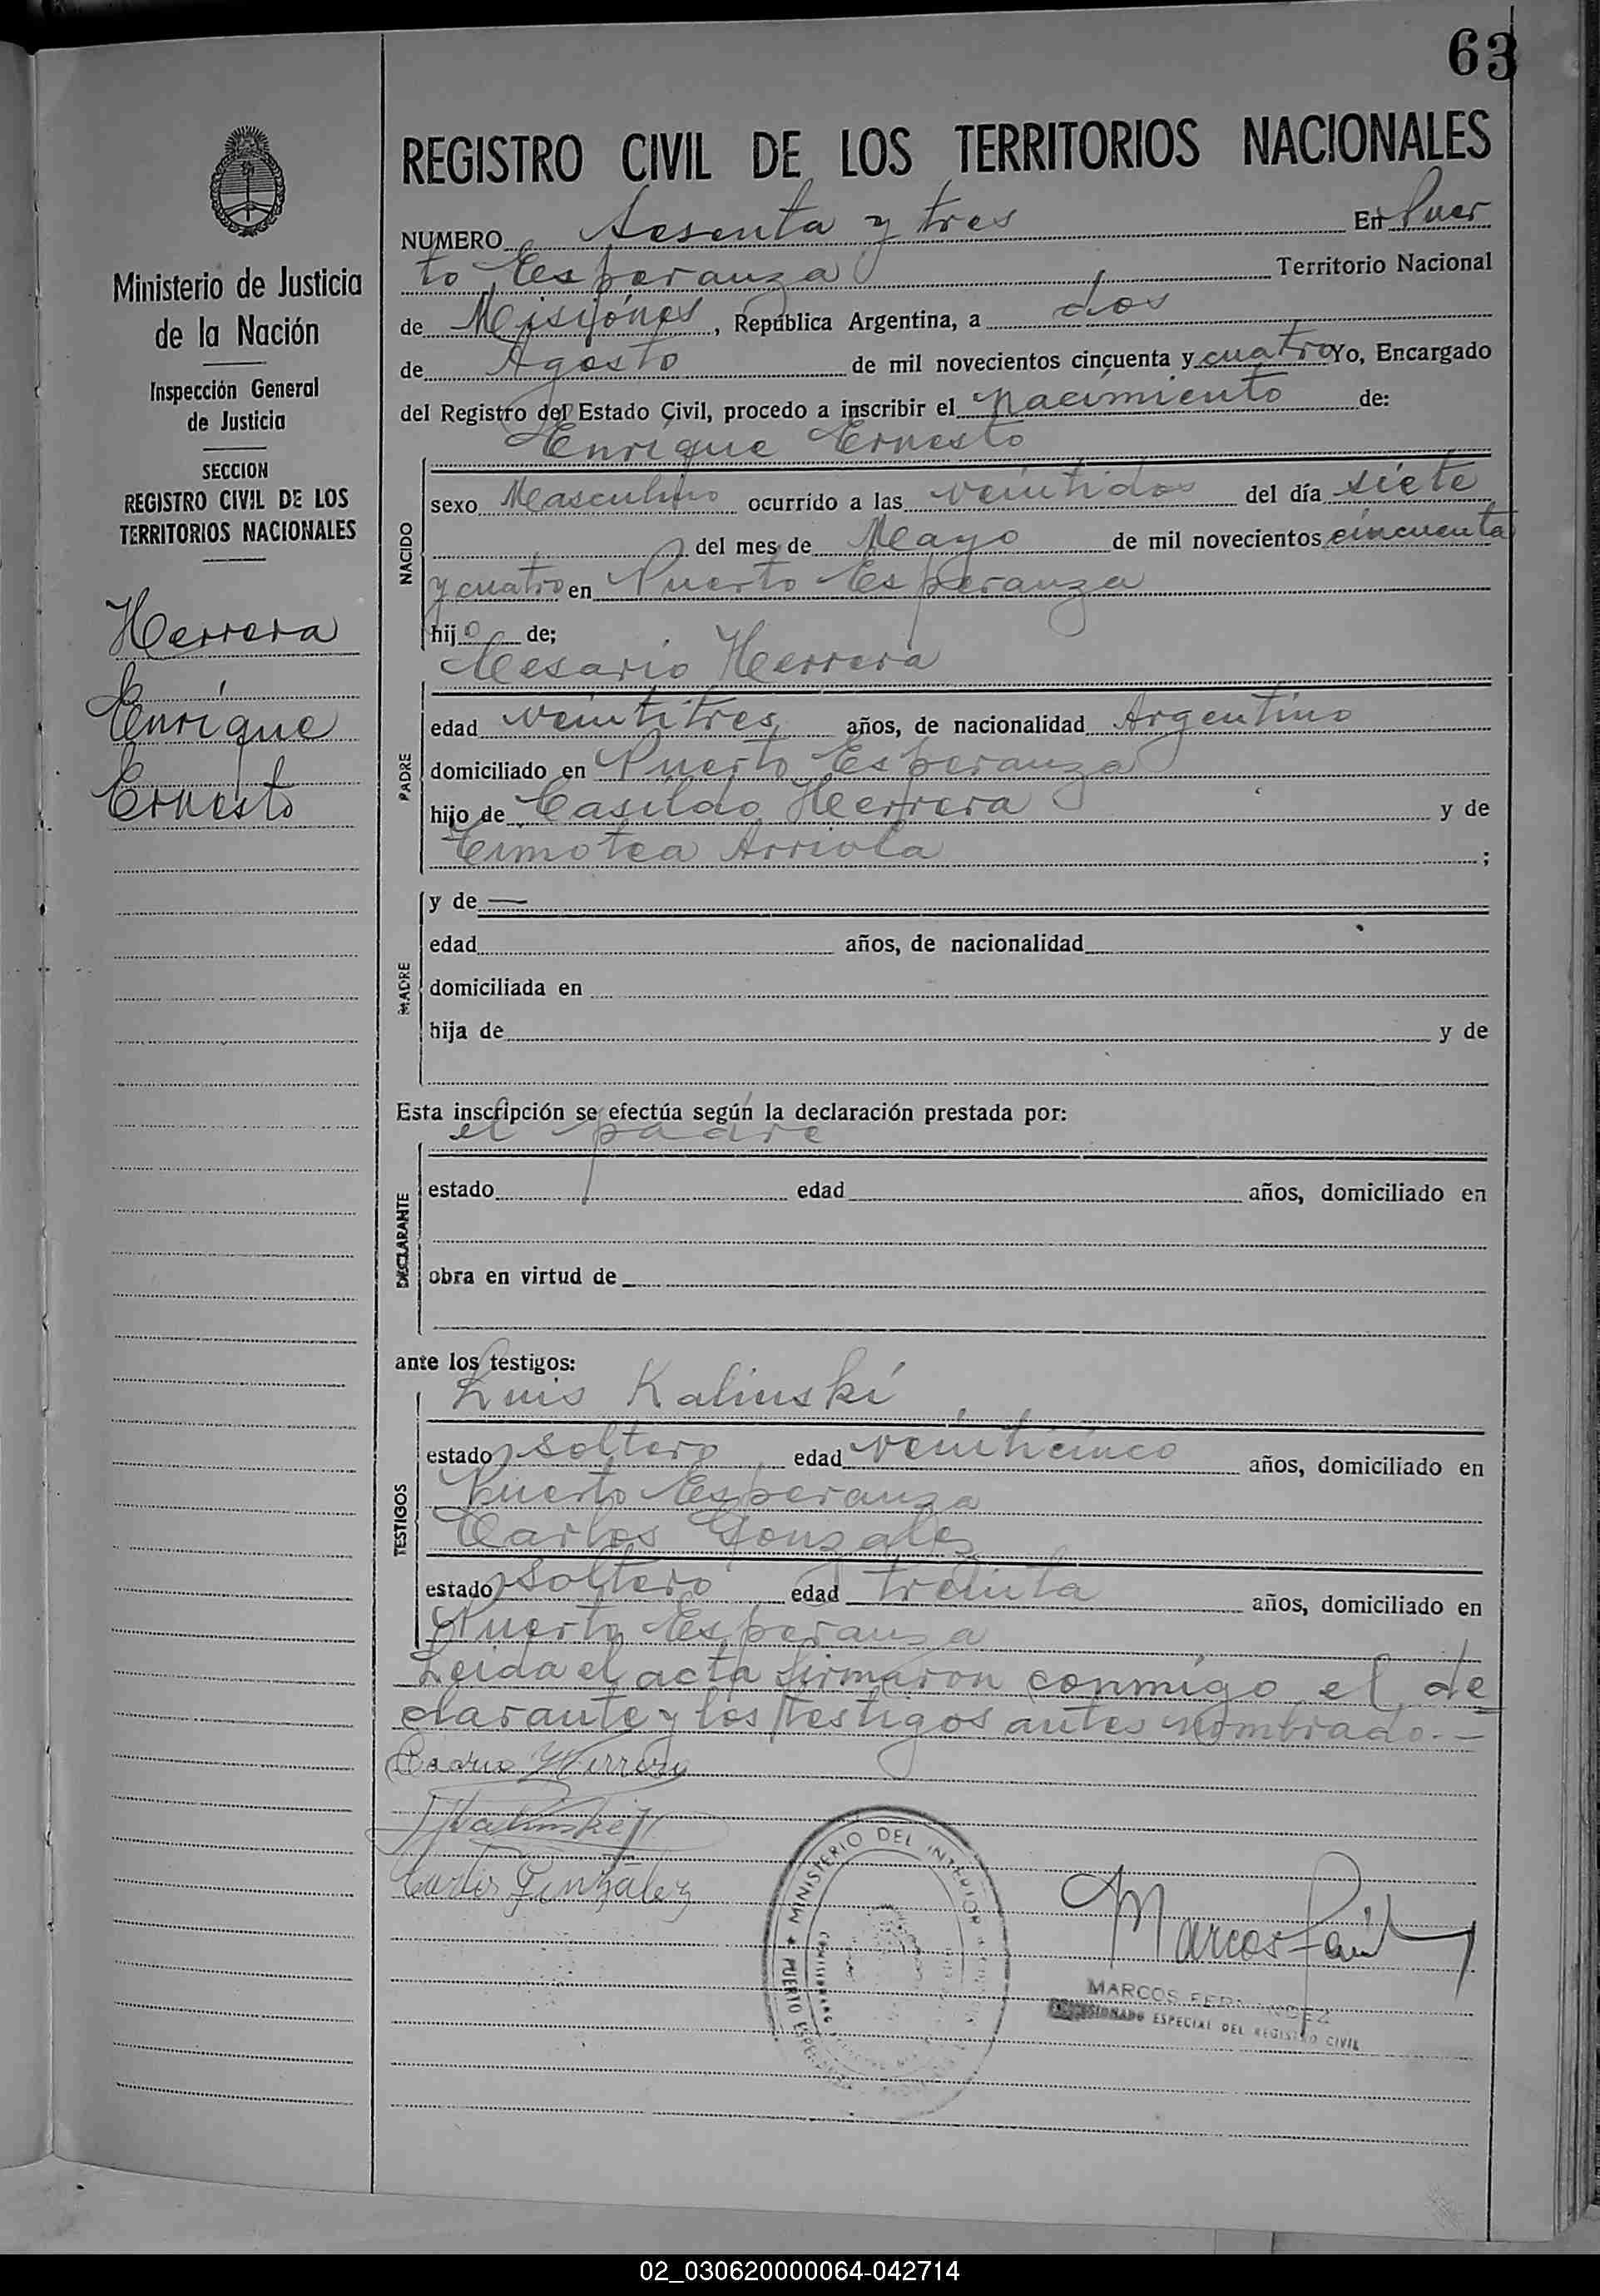 63
REGISTRO CIVIL DE LOS TERRITORIOS NACIONALES
NUMERO Sesenta y tres En Puer
to Esperanza Territorio Nacional
de Misiones, República Argentina, a dos
de Agosto de mil novecientos cincuenta y cuatro Yo, Encargado
del Registro del Estado Civil, procedo a inscribir el nacimiento de:
Enrique Ernesto
NACIDO
sexo Masculino ocurrido a las veintidos del día siete
del mes de Mayo de mil novecientos cincuenta
y cuatro en Puerto Esperanza
hijo de;
Cesario Herrera
PADRE
edad veintitres años, de nacionalidad Argentino
domiciliado en Puerto Esperanza
hijo de Casildo Herrera y de
Timotea Arriola ;
MADRE
y de —
edad años, de nacionalidad
domiciliada en
hija de y de
Esta inscripción se efectúa según la declaración prestada por:
el padre
DECLARANTE
estado edad años, domiciliado en
obra en virtud de
ante los testigos:
Luis Kalinski
TESTIGOS
estado soltero edad veinticinco años, domiciliado en
Puerto Esperanza
Carlos Gonzalez
estado soltero edad treinta años, domiciliado en
Puerto Esperanza
Leida el acta firmaron conmigo el de
clarante y los testigos antes nombrado.—
Herrera
Kalinski
Carlos González
MINISTERIO DEL INTERIOR
PUERTO ESPERANZA
Marcos
MARCOS FERNANDEZ
COMISIONADO ESPECIAL DEL REGISTRO CIVIL
Ministerio de Justicia
de la Nación
Inspección General
de Justicia
SECCION
REGISTRO CIVIL DE LOS
TERRITORIOS NACIONALES
Herrera
Enrique
Ernesto
02_030620000064-042714